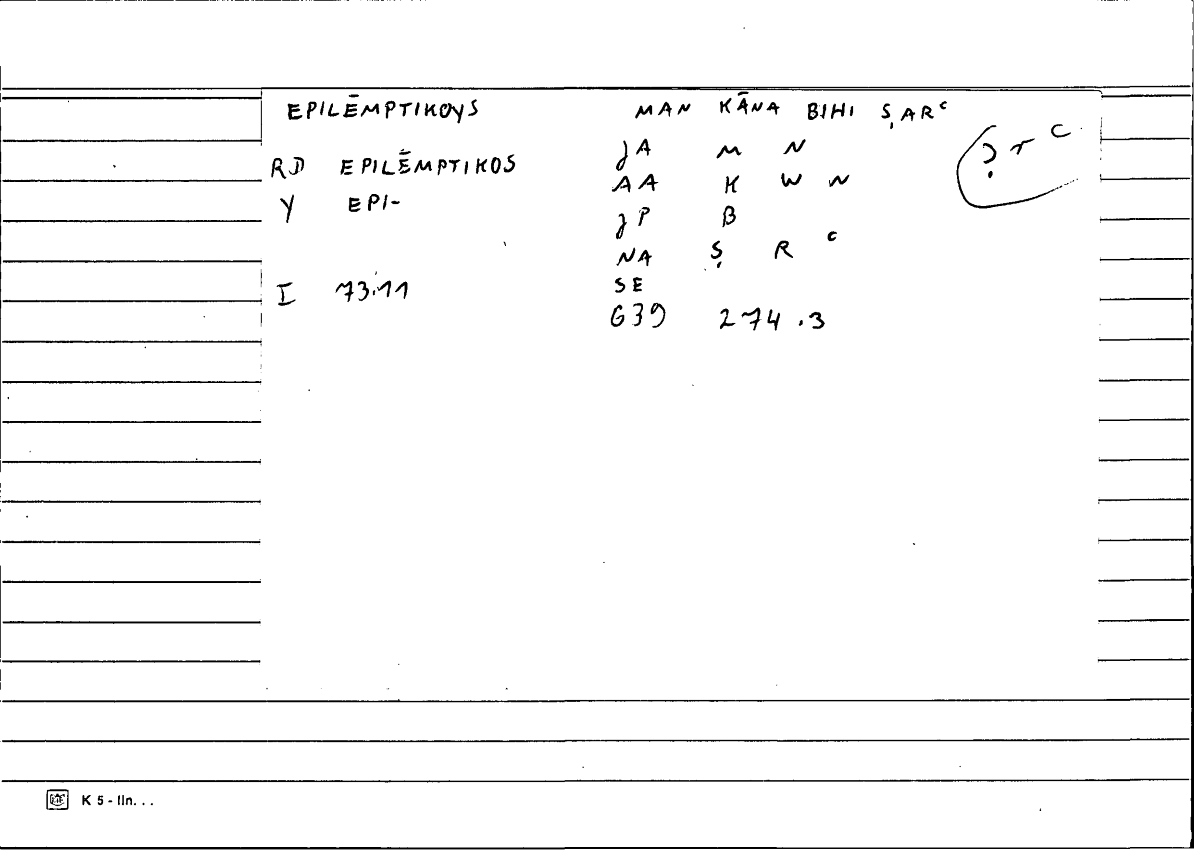 EPILĒMPTIKOYS MAN KĀNA BIHI ṢARᶜ
RD EPILĒMPTIKOS
Y EPI-
I 73.11
JA M N
AA K W N
JP B
NA Ṣ R ᶜ
SE
G39 274.3
ṣrᶜ
K 5 - lIn. . .